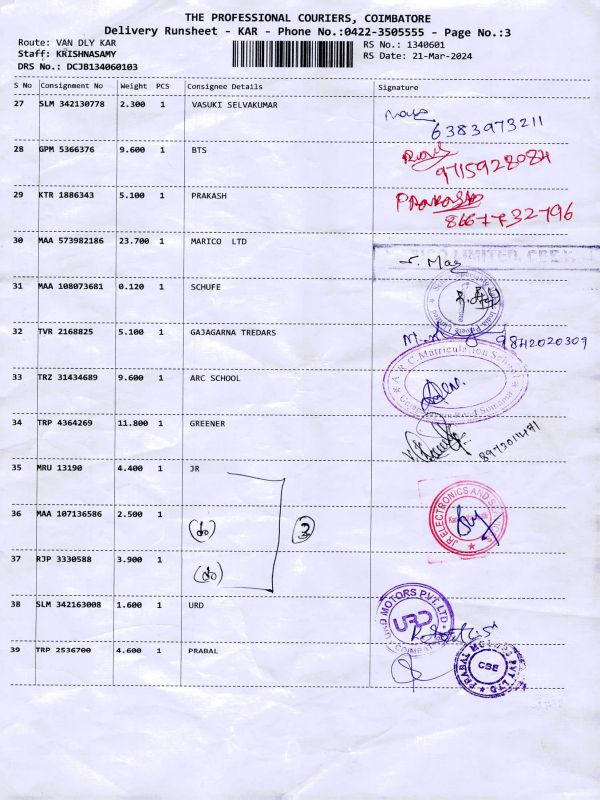 THE PROFESSIONAL COURIERS, COIMBATORE
Delivery Runsheet - KAR - Phone No.:0422-3505555 - Page No.:3
Route: VAN DLY KAR RS No.: 1340601
Staff: KRISHNASAMY RS Date: 21-Mar-2024
DRS No.: DCJB134060103
S No Consignment No Weight PCS Consignee Details Signature
27 SLM 342130778 2.300 1 VASUKI SELVAKUMAR
6383973211
28 GPM 5366376 9.600 1 BTS
9715928084
29 KTR 1886343 5.100 1 PRAKASH Prakash
8667732796
30 MAA 573982186 23.700 1 MARICO LTD
31 MAA 108073681 0.120 1 SCHUFE
32 TVR 2168825 5.100 1 GAJAGARNA TREDARS 9842020309
33 TRZ 31434689 9.600 1 ARC SCHOOL A R C Matriculation School
34 TRP 4364269 11.800 1 GREENER
8973011471
35 MRU 13190 4.400 1 JR
36 MAA 107136586 2.500 1 3 JR ELECTRONICS AND
37 RJP 3330588 3.900 1
38 SLM 342163008 1.600 1 URD URD MOTORS PVT.LTD
URD
39 TRP 2536700 4.600 1 PRABAL PRABAL MOTORS PVT LTD
CBE